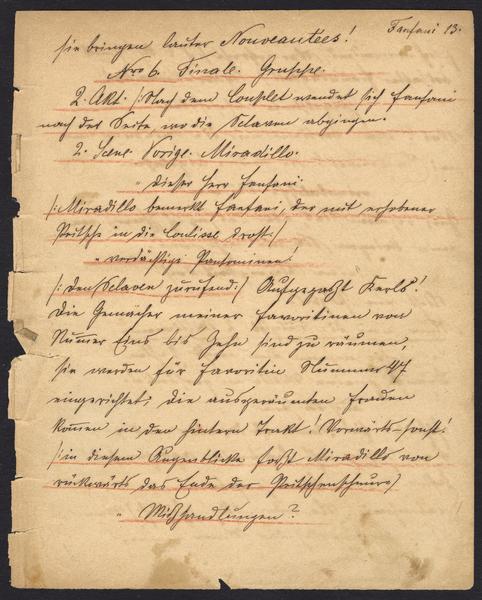 Fanfani 13.
sie bringen lauter Nouveautées!
Nro 6. Finale. Gruppe.
2. Akt. /: Nach dem Couplet wendet sich Fanfani
nach der Seite wo die Sclaven abgingen.
2. Scene. Vorige. Miradillo.
" dieser Herr Fanfani
/: Miradillo bemerkt Fanfani, der mit erhobener
Peitsche in die Coulisse droht. /
" verdächtige Pantominen!
/: den Sclaven zurufend :/ Aufgepaßt Kerls!
Die Gemächer meiner Favoritinen von
Numer Eins bis Zehn sind zu räumen,
sie werden für Favoritin Nummer 47
eingerichtet; die ausgeräumten Frauen
komen in den hintern Trakt! Vorwärts sonst!
/: in diesem Augenblicke faßt Miradillo von
rückwärts das Ende der Peitschenschnur /
" Mißhandlungen?